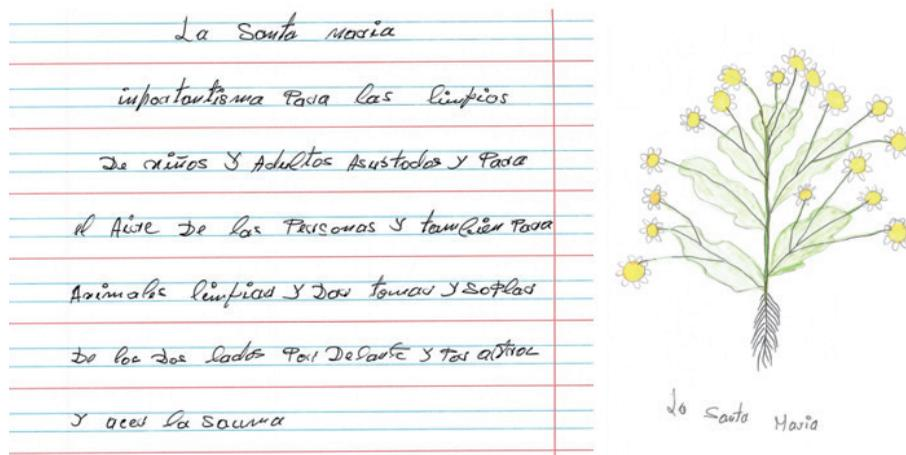 La Santa maria
inportantisma Para las linpias
De niños y Adultos Asustados y Para
el Aire De las Personas y también Para
Animales linpias y Dar tomar y soplar
De los Dos lados Por Delante y Por atras
y acer la sauma
La Santa Maria